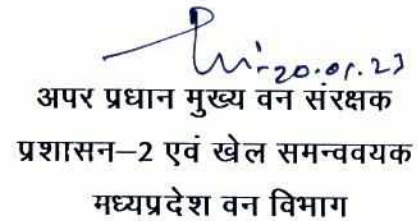 20.01.23
अपर प्रधान मुख्य वन संरक्षक
प्रशासन–2 एवं खेल समन्ववयक
मध्यप्रदेश वन विभाग